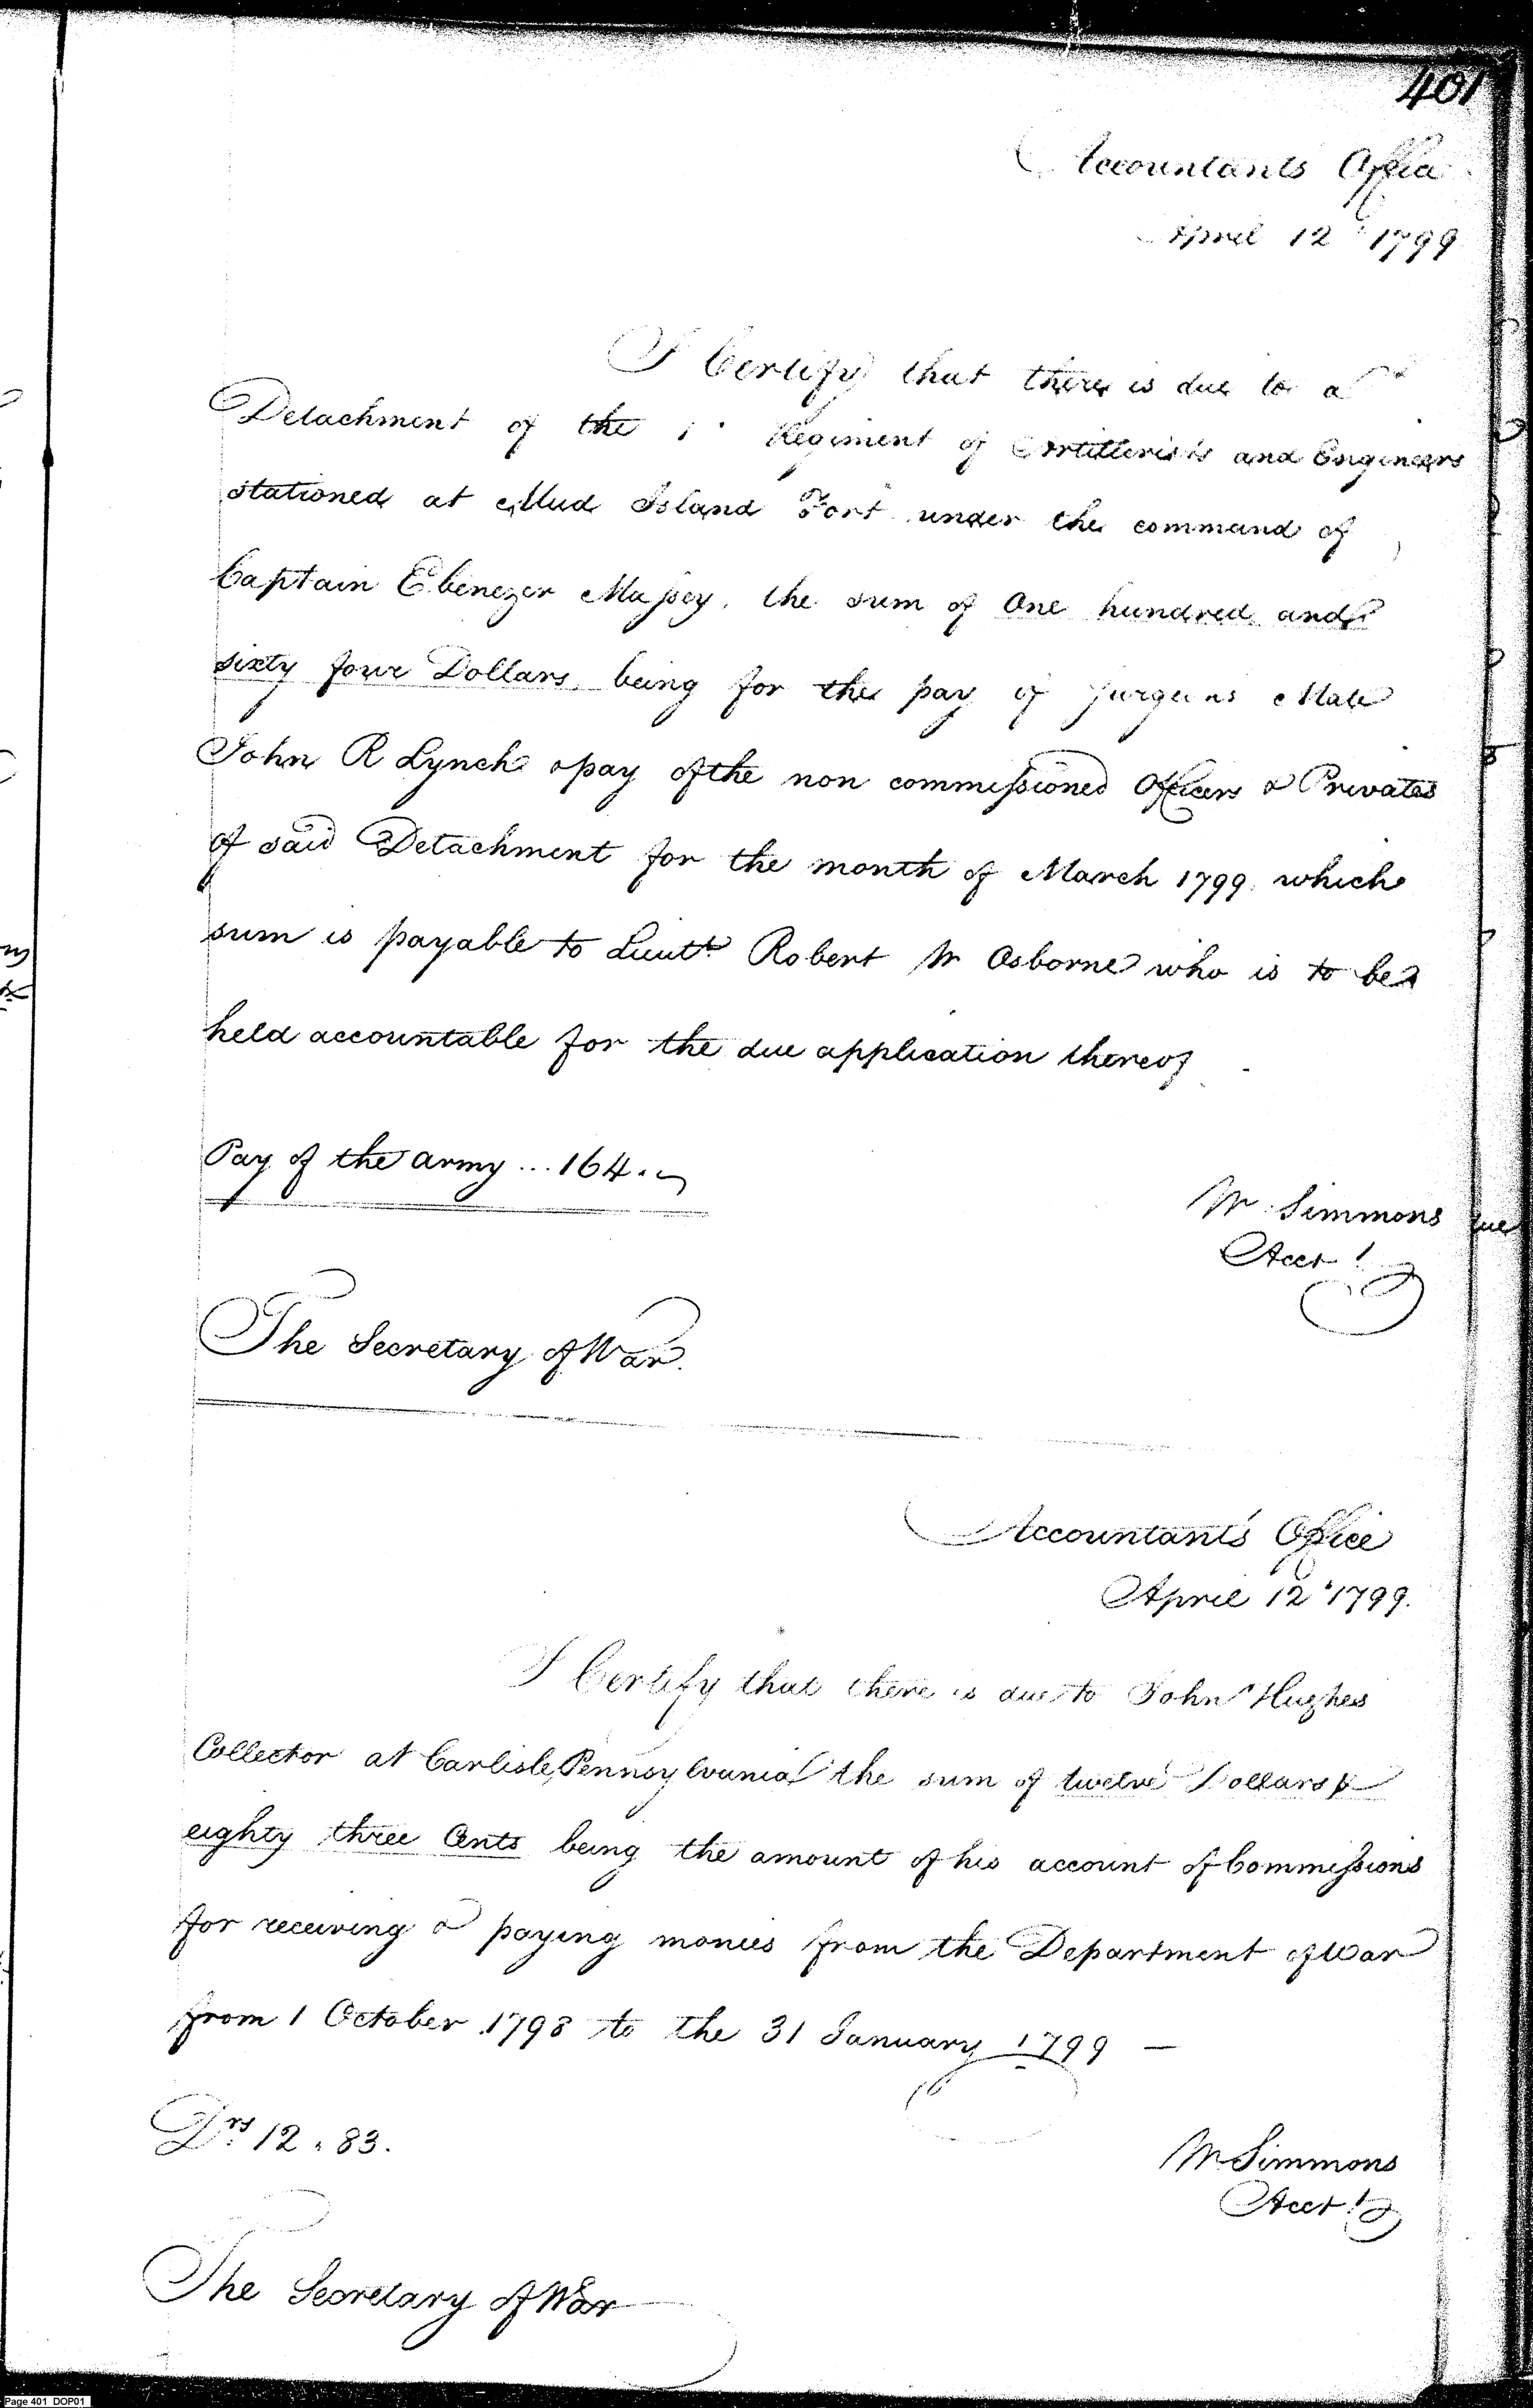 401
Accountants Office
April 12 1799
I Certify that there is due to a
Detachment of the 1 Regiment of Artillerists and Engineers
stationed at Mud Island Fort under the command of
Captain Ebenezer Massey, the sum of One hundred and
sixty four Dollars, being for the pay of Surgeons Mate
John R Lynch & pay of the non commissioned Officers & Privates
of said Detachment for the month of March 1799. which
sum is payable to Lieutt. Robert W Osborne who is to be
held accountable for the due application thereof
Pay of the army ... 164.
W. Simmons
Acct.
The Secretary of War.
Accountant's Office
April 12 1799.
I Certify that there is due to John Hughes
Collector at Carlisle, Pennsylvania the sum of twelve Dollars &
eighty three Cents being the amount of his account of Commissions
for receiving & paying monies from the Department of War
from 1 October 1798 to the 31 January 1799 —
Drs. 12.83.
W Simmons
Acct.
The Secretary of War
Page 401 DOP01